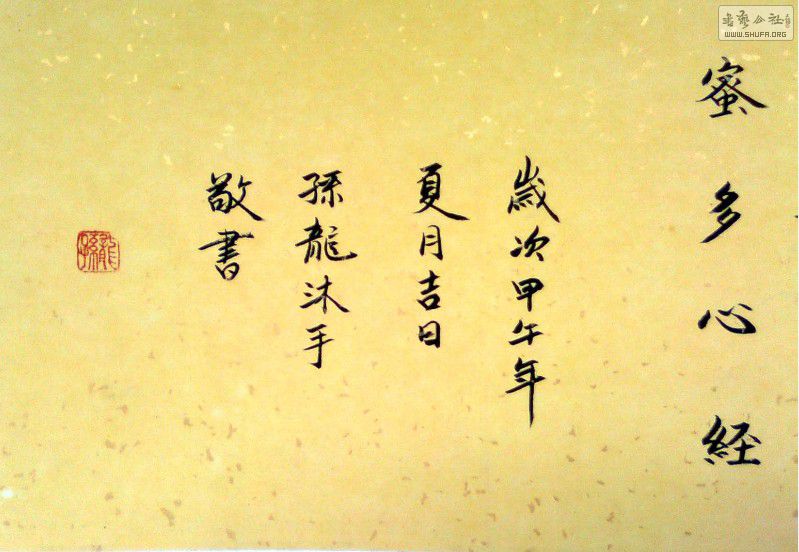 蜜多心経
歳次甲午年
夏月吉日
孫龍沐手
敬書
孫龍
書藝公社
WWW.SHUFA.ORG